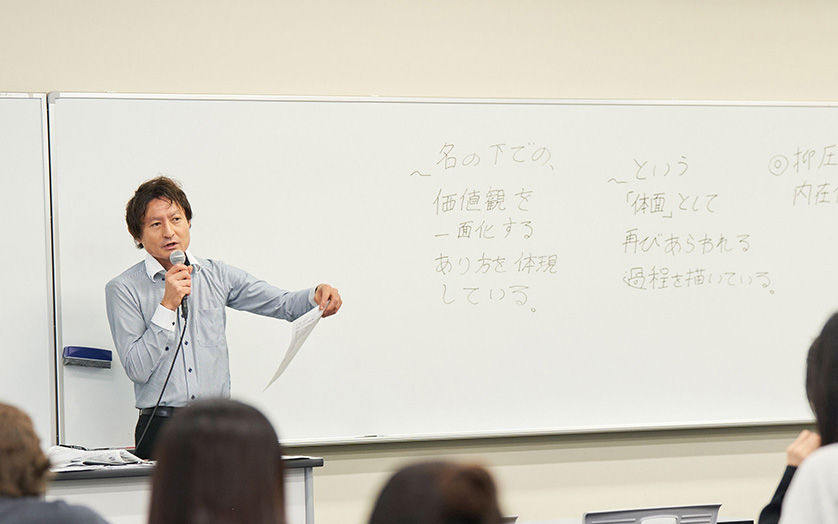 ～名の下での、
価値観を
一面化する
あり方を体現
している。
～という
「体面」として
再びあらわれる
過程を描いている。
◎抑圧
内在